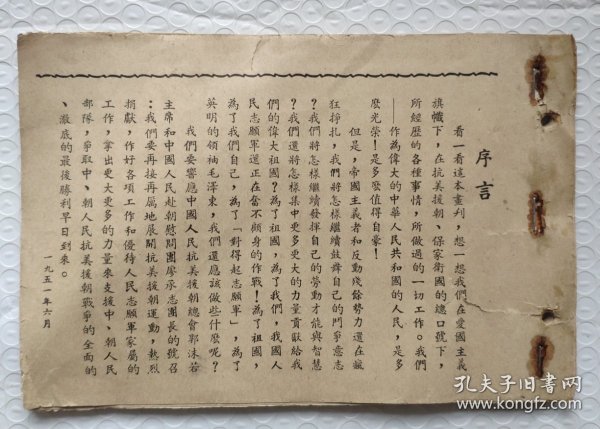 序言
看一看這本畫刋，想一想我們在愛國主義
旗幟下，在抗美援朝、保家衛國的總口號下，
所經歷的各種事情，所做過的一切工作。我們
——作為偉大的中華人民共和國的人民，是多
麼光榮！是多麼值得自豪！
但是，帝國主義者和反動殘餘勢力還在瘋
狂掙扎，我們將怎樣繼續鼓舞自己的鬥爭意志
？我們將怎樣繼續發揮自己的勞動才能與智慧
？我們還將怎樣集中更多更大的力量貢獻給我
們的偉大祖國？為了祖國，為了我們，我國人
民志願軍還正在奮不顧身的作戰！為了祖國，
為了我們自己，為了「對得起志願軍」，為了
英明的領袖毛澤東，我們還應該做些什麼呢？
我們要響應中國人民抗美援朝總會郭沫若
主席和中國人民赴朝慰問團廖承志團長的號召
：我們要再接再厲地展開抗美援朝運動，熱烈
捐獻，作好各項工作和優待人民志願軍家屬的
工作，拿出更大更多的力量來支援中、朝人民
部隊，爭取中、朝人民抗美援朝戰爭的全面的
、澈底的最後勝利早日到來。
一九五一年六月
孔夫子旧书网
www.kongfz.com